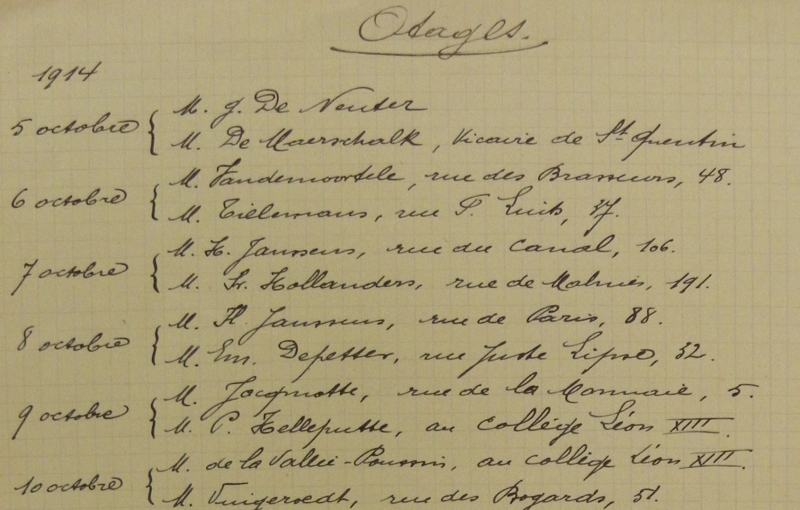 Otages.
1914
5 octobre { M. J. De Neuter
M. De Maerschalk, vicaire de St. Quentin
6 octobre { M. Vandemoortele, rue des Brasseurs, 48.
M. Tielemans, rue P. Smits, 37.
7 octobre { M. H. Janssens, rue du Canal, 106.
M. Fr. Hollanders, rue de Malines, 191.
8 octobre { M. Janssens, rue de Paris, 88.
M. Em. Depetter, rue Juste Lipse, 32.
9 octobre { M. Jacqmotte, rue de la Monnaie, 5.
M. P. Helleputte, au collège Léon XIII.
10 octobre { M. de la Vallée-Poussin, au collège Léon XIII.
M. rue des Bogards, 51.